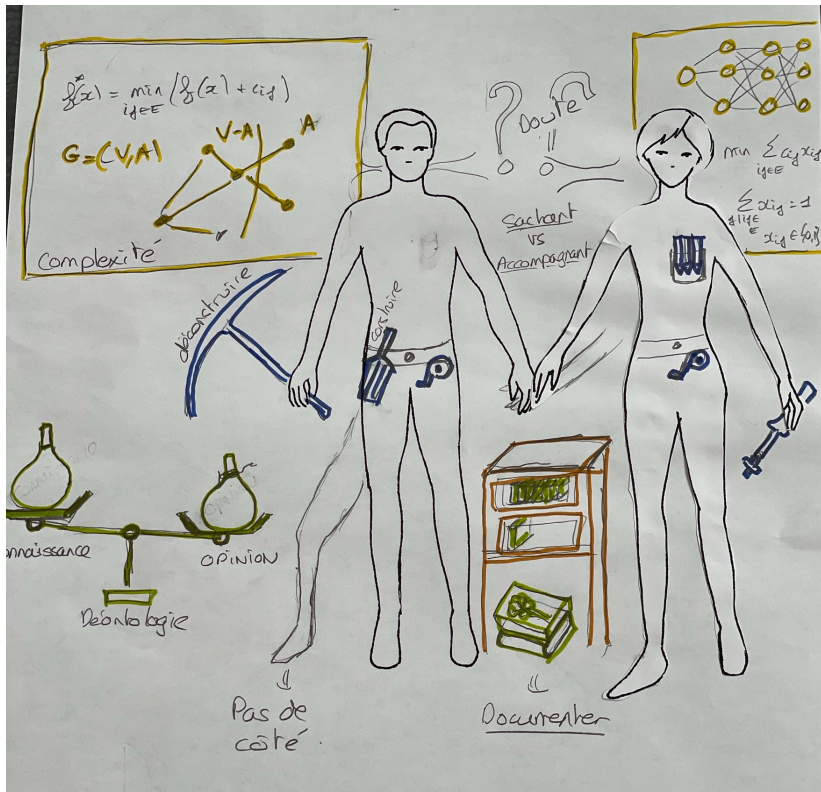 f*(x) = min (f(x) + cij)
ij∈E
G=(V,A)
V-A
A
Complexité
Doute
Sachant
vs
Accompagnant
min ∑ cij xij
ij∈E
∑ xij = 1
déconstruire
construire
onnaissance
OPINION
Déontologie
Pas de
côté.
Documenter